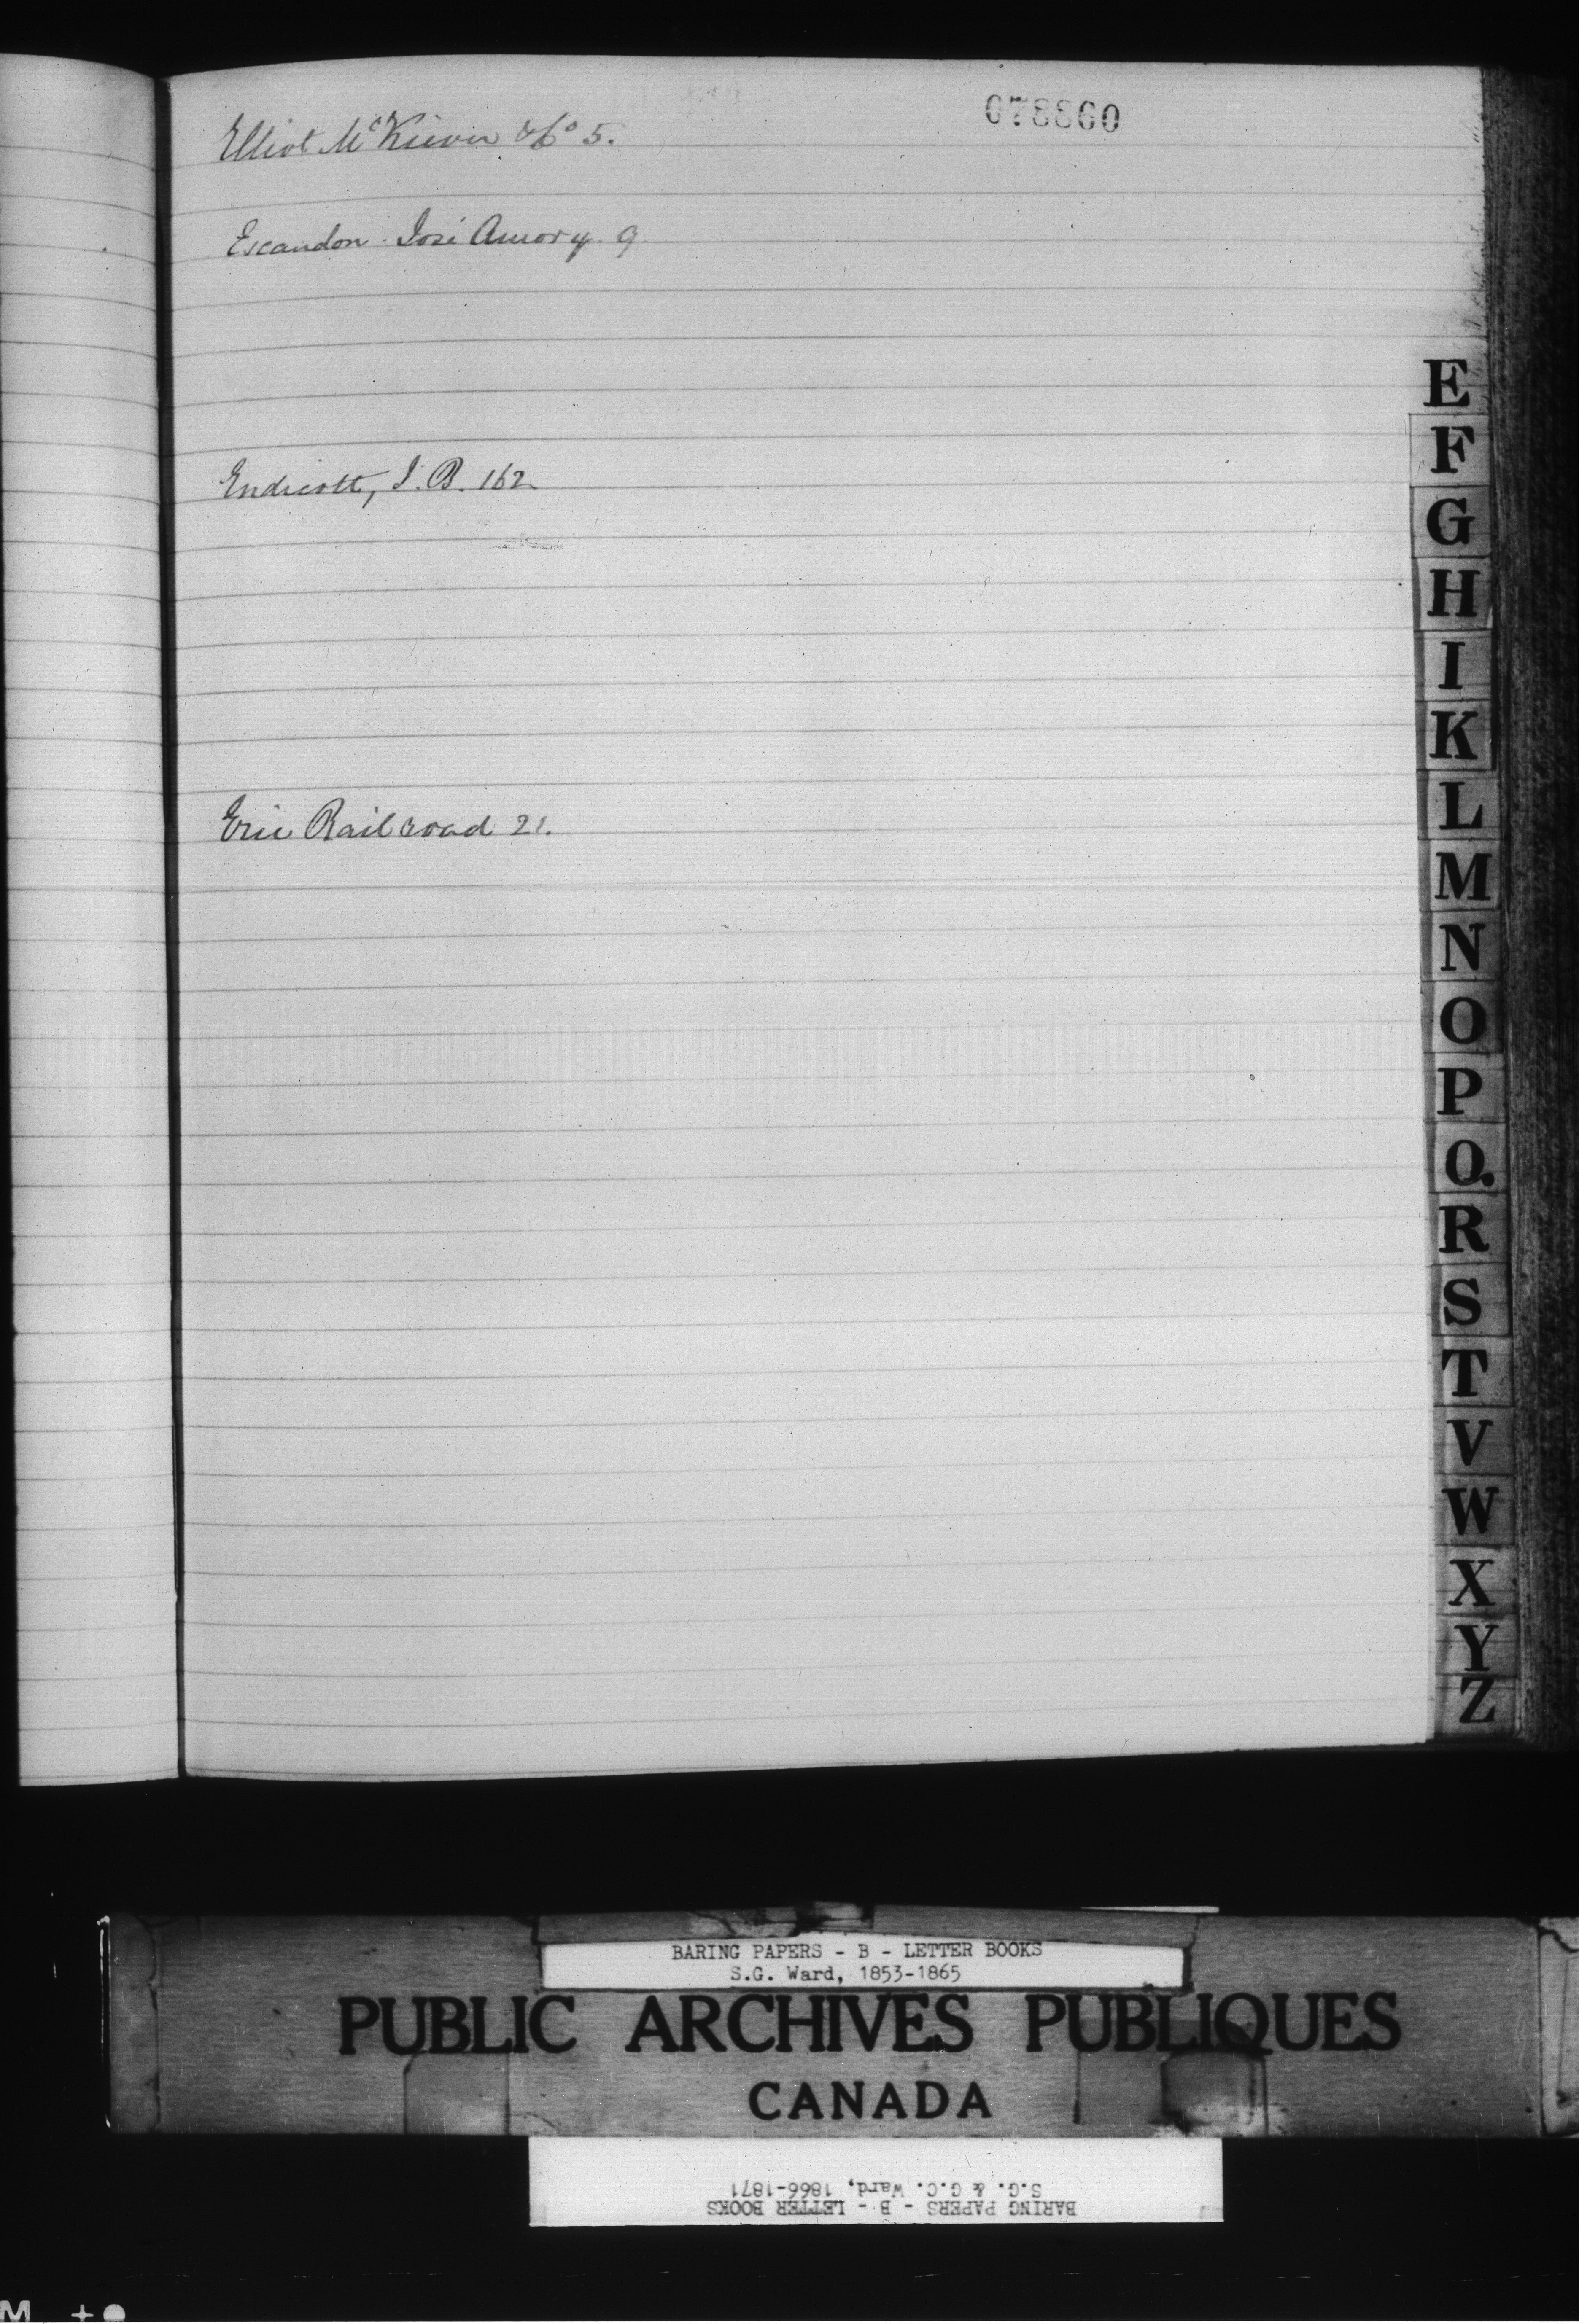 078860
Elliot McKiever & Co 5.
Escandon José Amory. 9
Endicott, I. B. 162
Erie Railroad 21.
E
F
G
H
I
K
L
M
N
O
P
Q
R
S
T
V
W
X
Y
Z
BARING PAPERS - B - LETTER BOOKS
S.G. Ward, 1853-1865
PUBLIC ARCHIVES PUBLIQUES
CANADA
BARING PAPERS - B - LETTER BOOKS
S.G. & G.C. Ward, 1866-1871
M